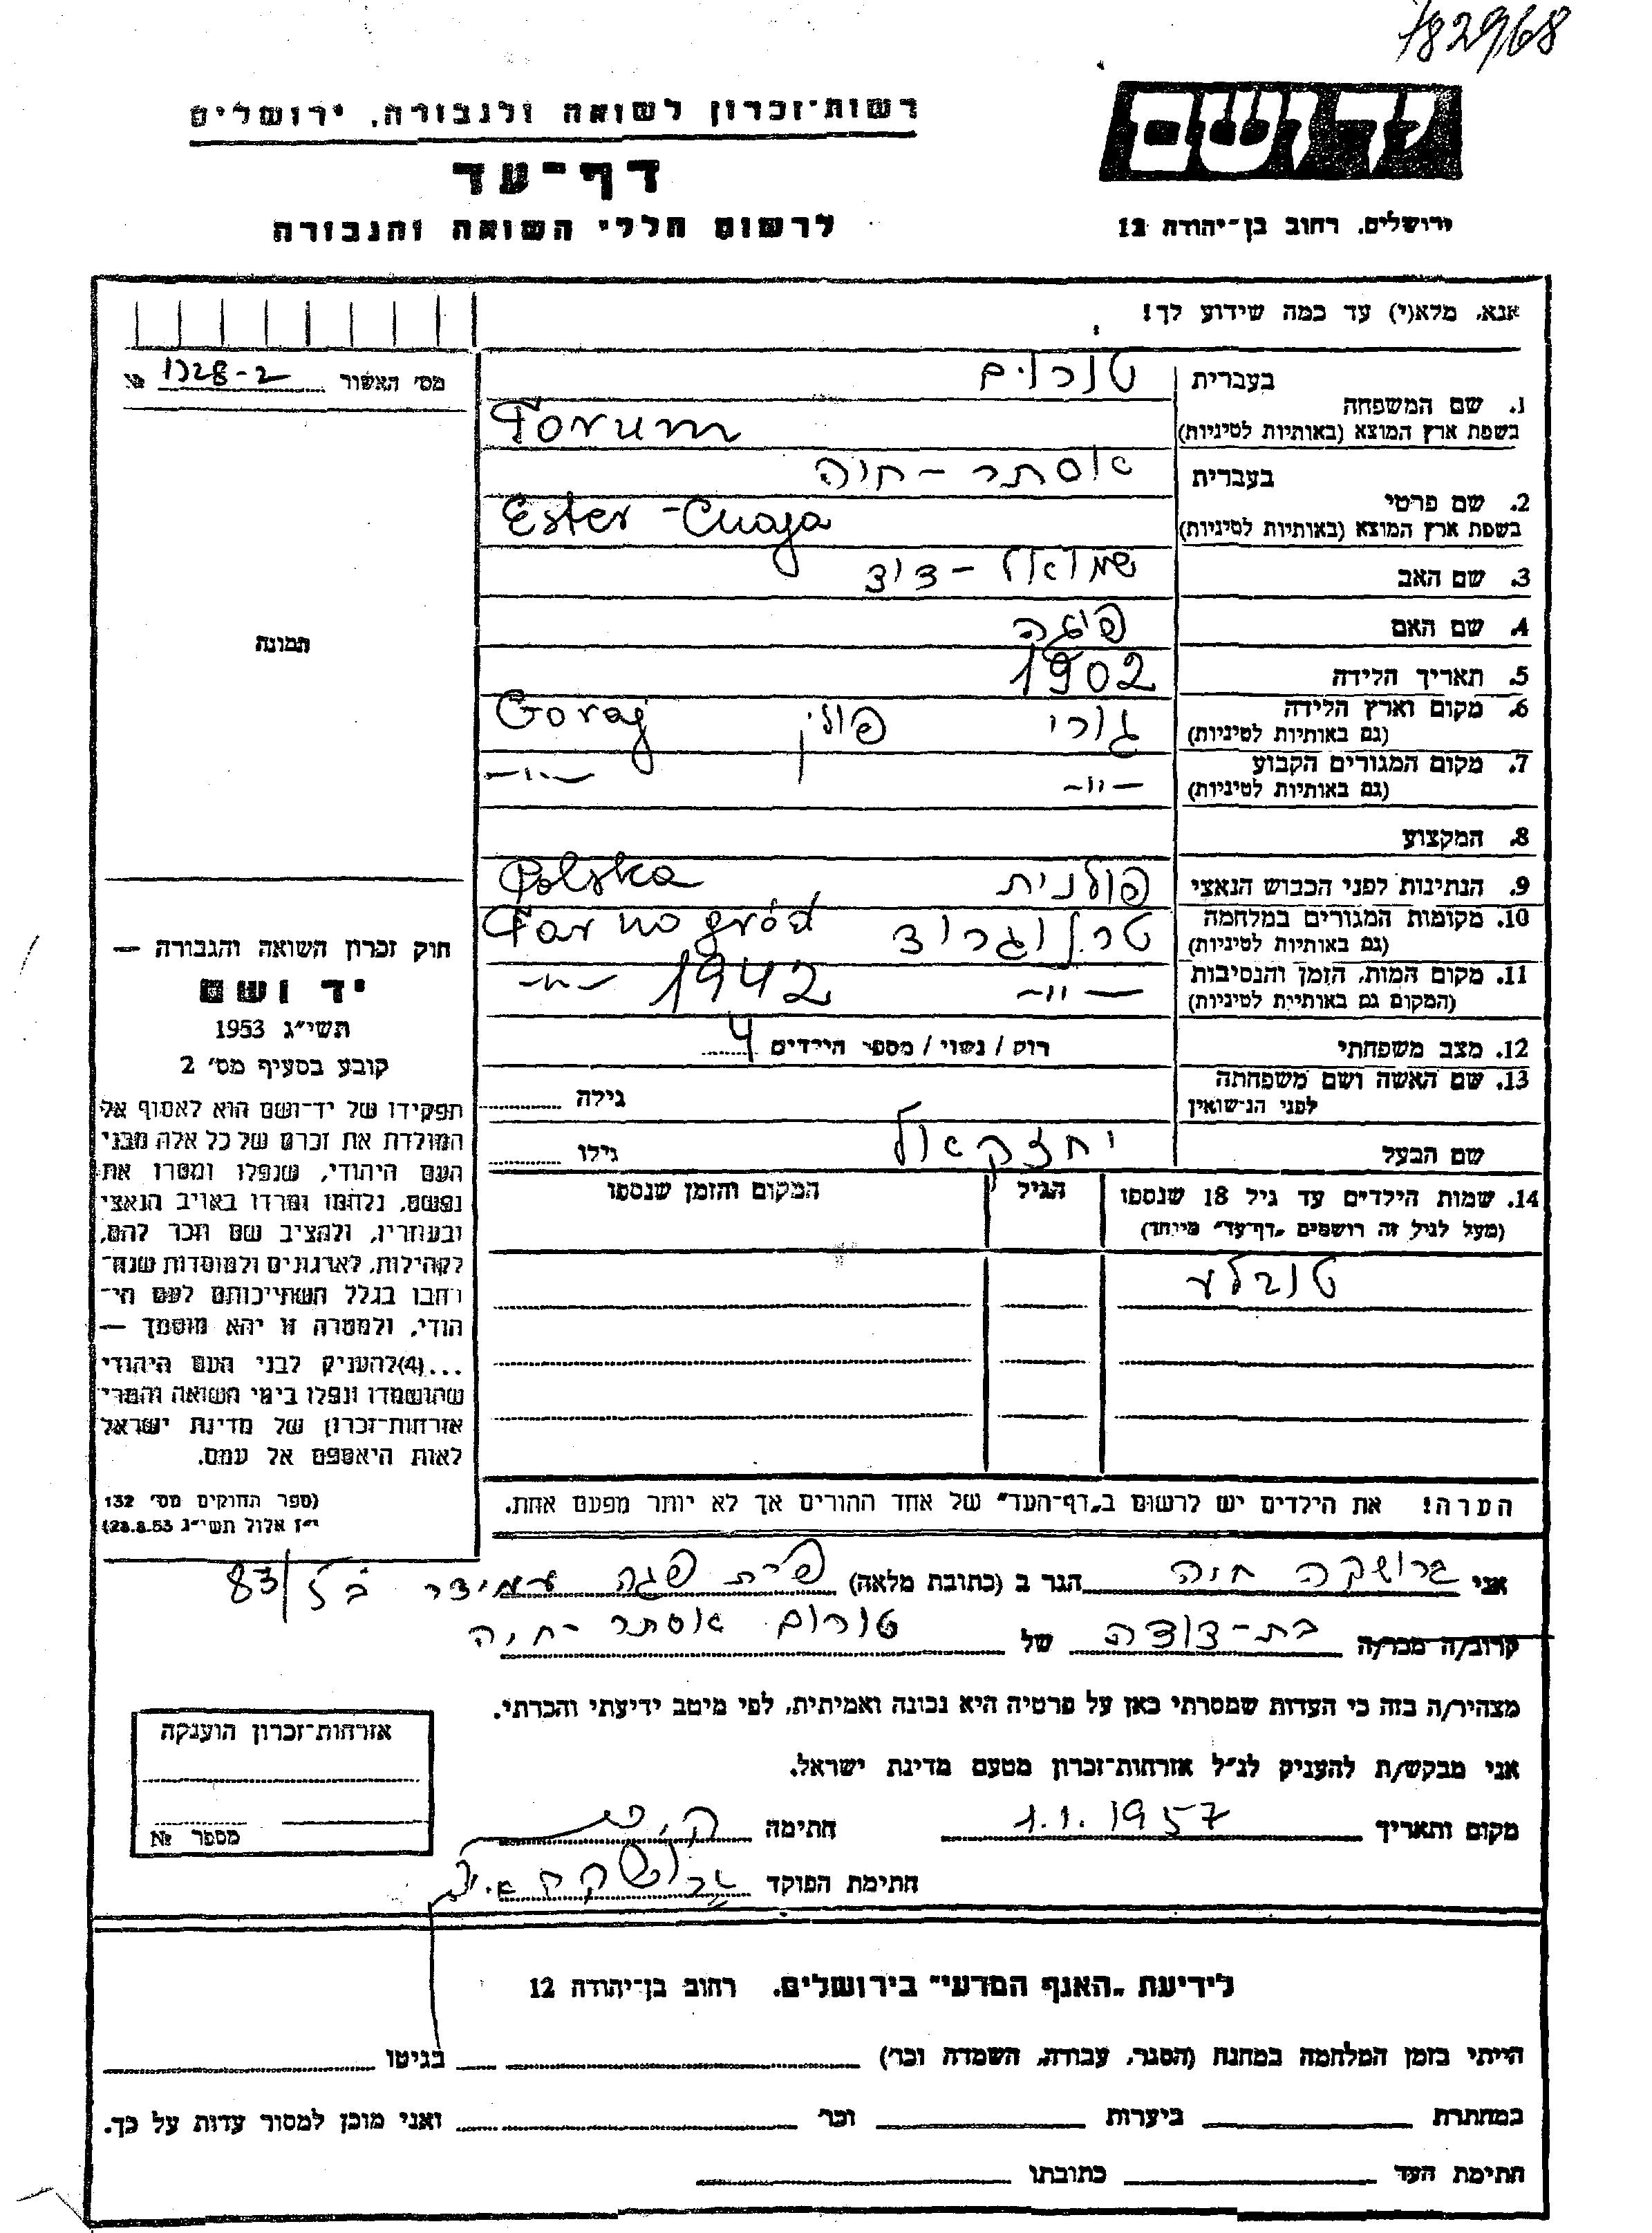 782968
רשות־זכרון לשואה ולגבורה, ירושלים
יד ושם
דף־עד
לרשום חללי השואה והגבורה
ירושלים, רחוב בן־יהודה 12
אנא, מלא(י) עד כמה שידוע לך!
מס׳ האשור № 1728-2
תמונה
1. שם המשפחה
בעברית טורוים
בשפת ארץ המוצא (באותיות לטיניות) Torum
2. שם פרטי
בעברית אסתר - חיה
בשפת ארץ המוצא (באותיות לטיניות) Ester - Chaja
3. שם האב שמואל - דוד
4. שם האם פיגה
5. תאריך הלידה 1902
6. מקום וארץ הלידה גורי פולין Goraj
(גם באותיות לטיניות)
7. מקום המגורים הקבוע —"— —"—
(גם באותיות לטיניות)
8. המקצוע
9. הנתינות לפני הכבוש הנאצי פולנית Polska
10. מקומות המגורים במלחמה טרנוגרוד Tarnogród
(גם באותיות לטיניות)
11. מקום המות, הזמן והנסיבות —"— 1942 —"—
(המקום גם באותיות לטיניות)
12. מצב משפחתי רוק / נשוי / מספר הילדים 4
13. שם האשה ושם משפחתה
לפני הנישואין גילה
שם הבעל יחזקאל גילו
14. שמות הילדים עד גיל 18 שנספו הגיל המקום והזמן שנספו
(מעל לגיל זה רושמים „דף־עד" מיוחד)
טובלע
הערה! את הילדים יש לרשום ב„דף־העד" של אחד ההורים אך לא יותר מפעם אחת.
חוק זכרון השואה והגבורה —
יד ושם
תשי״ג 1953
קובע בסעיף מס׳ 2
תפקידו של יד־ושם הוא לאסוף אל
המולדת את זכרם של כל אלה מבני
העם היהודי, שנפלו ומסרו את
נפשם, נלחמו ומרדו באויב הנאצי
ובעוזריו, ולהציב שם וזכר להם,
לקהילות, לארגונים ולמוסדות שנח־
רבו בגלל השתייכותם לעם הי־
הודי, ולמטרה זו יהא מוסמך —
...(4)להעניק לבני העם היהודי
שהושמדו ונפלו בימי השואה והמרי
אזרחות־זכרון של מדינת ישראל
לאות היאספם אל עמם.
(ספר החוקים מס׳ 132
י״ז אלול תשי״ג 28.8.53)
אני גרושקה חנה הגר ב (כתובת מלאה) קרית פגה עמידר 83/
קרוב/ה מכר/ה בת-דודה של טורום אסתר - חיה
מצהיר/ה בזה כי העדות שמסרתי כאן על פרטיה היא נכונה ואמיתית, לפי מיטב ידיעתי והכרתי.
אני מבקש/ת להעניק לנ״ל אזרחות־זכרון מטעם מדינת ישראל.
מקום ותאריך 1.1.1957 חתימה
חתימת הפוקד
אזרחות־זכרון הוענקה
מספר №
לידיעת „האגף המדעי" בירושלים, רחוב בן־יהודה 12
הייתי בזמן המלחמה במחנה (הסגר, עבודה, השמדה וכר) בגיטו
במחתרת ביערות וכר ואני מוכן למסור עדות על כך.
חתימת העד כתובתו